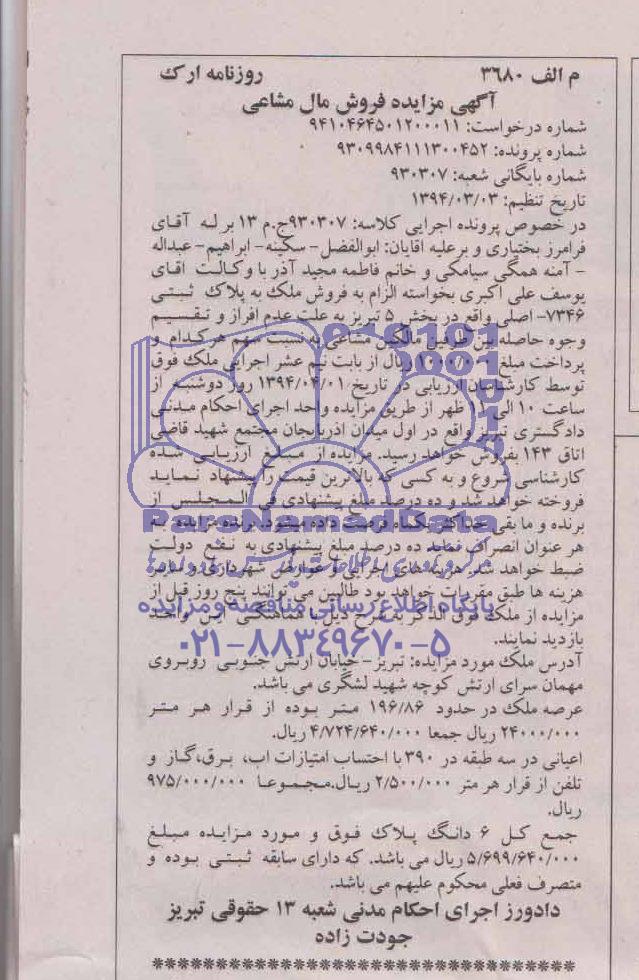 م الف ۳۶۸۰ روزنامه ارک
آگهی مزایده فروش مال مشاعی
شماره درخواست: ۹۴۱۰۴۶۴۵۰۱۲۰۰۰۱۱
شماره پرونده: ۹۳۰۹۹۸۴۱۱۱۳۰۰۴۵۲
شماره بایگانی شعبه: ۹۳۰۳۰۷
تاریخ تنظیم: ۱۳۹۴/۰۳/۰۳
در خصوص پرونده اجرایی کلاسه: ۹۳۰۳۰۷ج.م ۱۳ بر له آقای
فرامرز بختیاری و برعلیه اقایان: ابوالفضل- سکینه- ابراهیم- عبداله
- آمنه همگی سیامکی و خانم فاطمه مجید آذر با وکالت اقای
یوسف علی اکبری بخواسته الزام به فروش ملک به پلاک ثبتی
۷۳۴۶- اصلی واقع در بخش ۵ تبریز به علت عدم افراز و تقسیم
وجوه حاصله بین طرفین مالکین مشاعی به نسبت سهم هرکدام و
پرداخت مبلغ ریال از بابت نیم عشر اجرایی ملک فوق
توسط کارشناسان ارزیابی در تاریخ ۱۳۹۴/۰۴/۰۱ روز دوشنبه از
ساعت ۱۰ الی ۱۱ ظهر از طریق مزایده واحد اجرای احکام مدنی
دادگستری تبریز واقع در اول میدان اذربایجان مجتمع شهید قاضی
اتاق ۱۴۳ بفروش خواهد رسید. مزایده از مبلغ ارزیابی شده
کارشناسی شروع و به کسی که بالاترین قیمت را پیشنهاد نماید
فروخته خواهد شد و ده درصد مبلغ پیشنهادی فی المجلس از
برنده و ما بقی حداکثر یکماه فرصت داده میشود. برنده مزایده به
هر عنوان انصراف نماید ده درصد مبلغ پیشنهادی به نفع دولت
ضبط خواهد شد. هزینه های اجرایی و عوارض شهرداری و سایر
هزینه ها طبق مقررات خواهد بود طالبین می توانند پنج روز قبل از
مزایده از ملک فوق الذکر به شرح ذیل با هماهنگی این واحد
بازدید نمایند.
آدرس ملک مورد مزایده: تبریز- خیابان ارتش جنوبی روبروی
مهمان سرای ارتش کوچه شهید لشگری می باشد.
عرصه ملک در حدود ۱۹۶/۸۶ متر بوده از قرار هر متر
۲۴۰۰۰/۰۰۰ ریال جمعا ۴/۷۲۴/۶۴۰/۰۰۰ ریال.
اعیانی در سه طبقه در ۳۹۰ با احتساب امتیازات اب، برق، گاز و
تلفن از قرار هر متر ۲/۵۰۰/۰۰۰ ریال. مجموعا ۹۷۵/۰۰۰/۰۰۰
ریال.
جمع کل ۶ دانگ پلاک فوق و مورد مزایده مبلغ
۵/۶۹۹/۶۴۰/۰۰۰ ریال می باشد. که دارای سابقه ثبتی بوده و
متصرف فعلی محکوم علیهم می باشد.
دادورز اجرای احکام مدنی شعبه ۱۳ حقوقی تبریز
جودت زاده
ParsNamadData
پایگاه اطلاع رسانی مناقصه و مزایده
۰۲۱-۸۸۳۴۹۶۷۰-۵